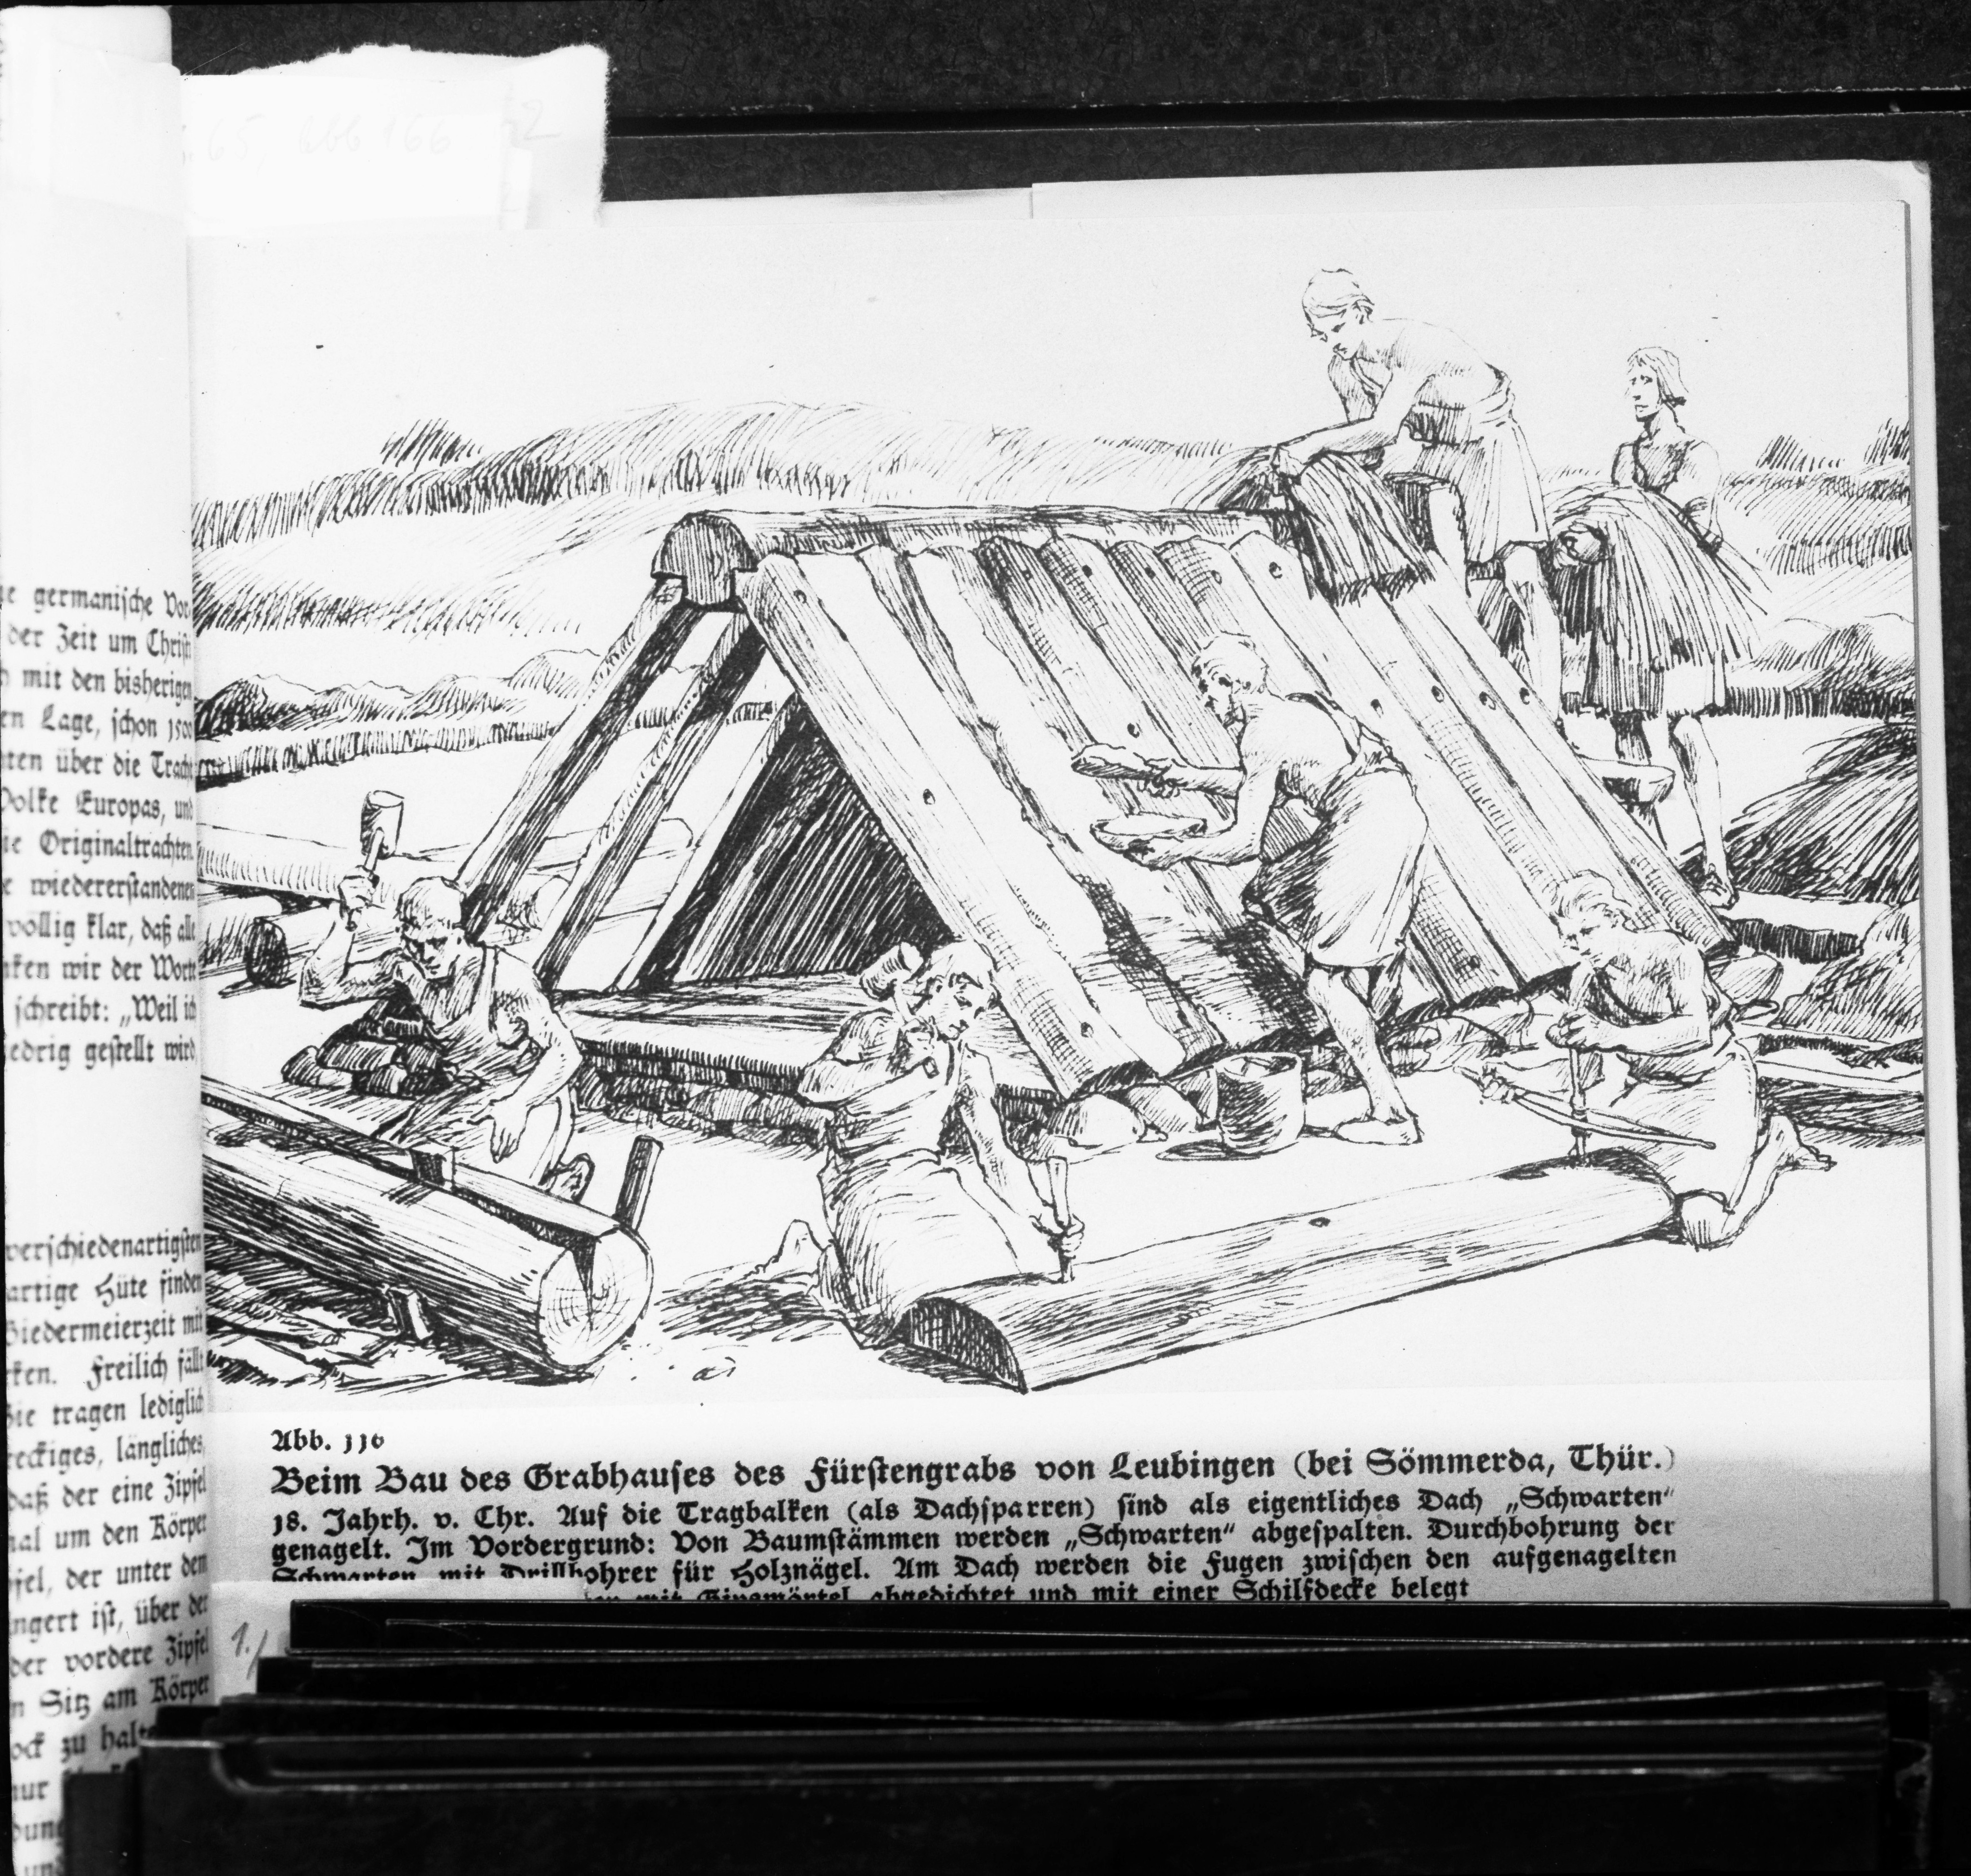 65, Abb 166
germanische Vor
der Zeit um Christi
mit den bisherigen
en Lage, schon 1500
ten über die Tracht
Volke Europas, und
ie Originaltrachten
wiedererstandenen
völlig klar, daß alle
ken wir der Worte
schreibt: „Weil ich
edrig gestellt wird
verschiedenartigsten
artige Hüte finden
Biedermeierzeit mit
ken. Freilich fällt
Sie tragen lediglich
eckiges, längliches,
daß der eine Zipfel
al um den Körper
fel, der unter dem
ngert ist, über der
der vordere Zipfel
n Sitz am Körper
ock zu halt
nur
dung
und
Abb. 116
Beim Bau des Grabhauses des Fürstengrabs von Leubingen (bei Sömmerda, Thür.)
18. Jahrh. v. Chr. Auf die Tragbalken (als Dachsparren) sind als eigentliches Dach „Schwarten“
genagelt. Im Vordergrund: Von Baumstämmen werden „Schwarten“ abgespalten. Durchbohrung der
Schwarten mit Drillbohrer für Holznägel. Am Dach werden die Fugen zwischen den aufgenagelten
mit Gipsmörtel abgedichtet und mit einer Schilfdecke belegt
1./